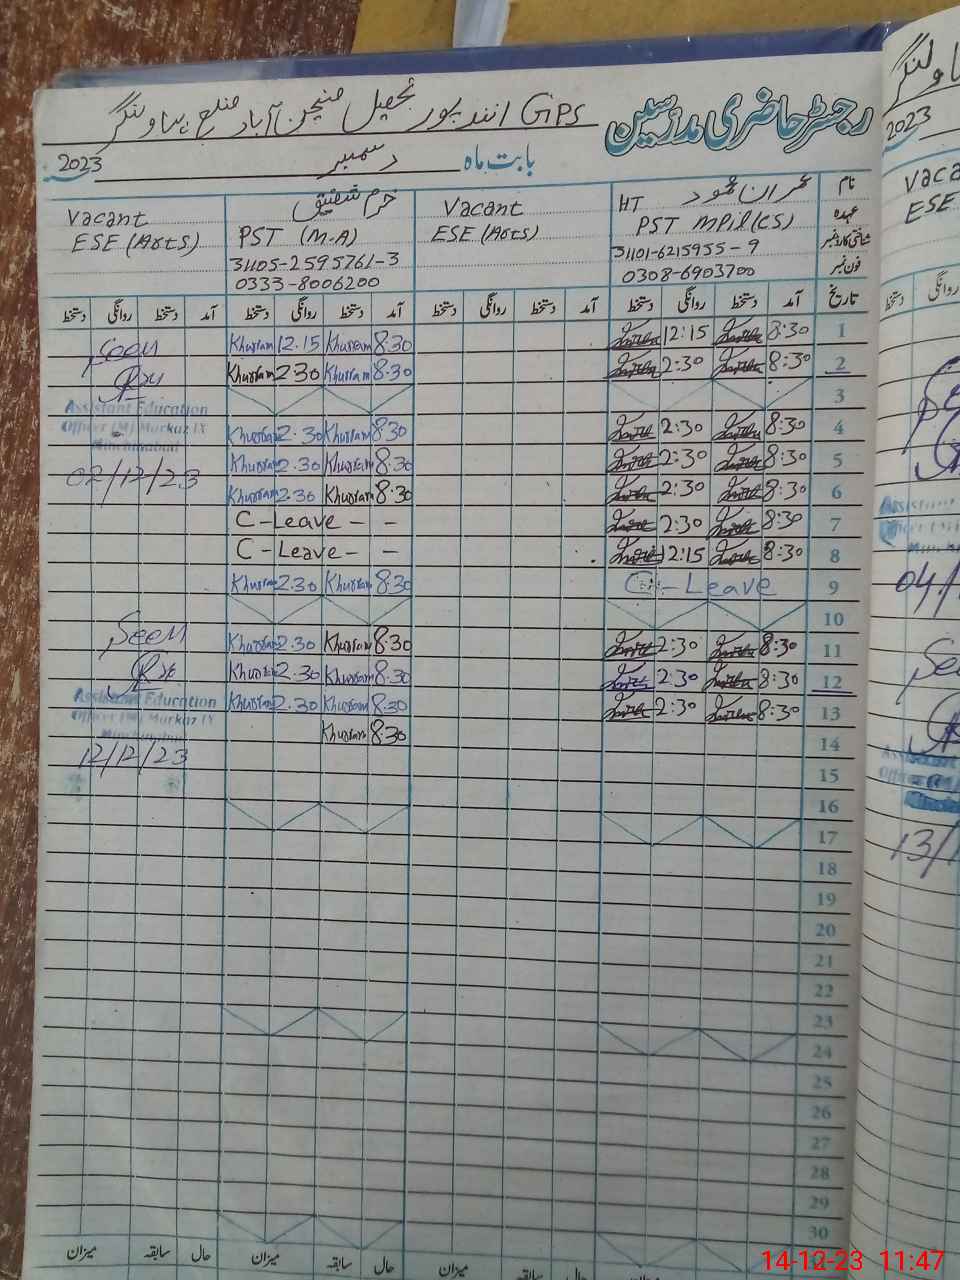 رجسٹر حاضری مدرسین
GPS انندپور تحصیل منچن آباد ضلع بہاولنگر
بابت ماہ دسمبر 2023
نام عمران محمود Vacant خرم شفیق Vacant
عہدہ HT PST MPil (CS) ESE (Arts) PST (M.A) ESE (Arts)
شناختی کارڈ نمبر 31101-6215955-9 31105-2595761-3
فون نمبر 0308-6903700 0333-8006200
تاریخ آمد دستخط روانگی دستخط آمد دستخط روانگی دستخط آمد دستخط روانگی دستخط آمد دستخط روانگی دستخط
1 8:30 12:15 8:30 Khurram 12.15 Khurram Seen
2 8:30 2:30 8:30 Khurram 2.30 Khurram
3
Assistant Education
Officer (M) Markaz IX
Minchinabad
4 8:30 2:30 8:30 Khurram 2.30 Khurram
5 8:30 2:30 8:30 Khurram 2.30 Khurram
02/12/23
6 8:30 2:30 8:30 Khurram 2.30 Khurram
7 8:30 2:30 C - Leave - -
8 8:30 12:15 C - Leave - -
9 C - Leave 8:30 Khurram 2.30 Khurram
10
11 8:30 2:30 8:30 Khurram 2.30 Khurram Seen
12 8:30 2:30 8:30 Khurram 2.30 Khurram
13 8:30 2:30 8:30 Khurram 2.30 Khurram
Assistant Education
Officer (M) Markaz IX
Minchinabad
14 8:30 Khurram
12/12/23
15
16
17
18
19
20
21
22
23
24
25
26
27
28
29
30
حال سابقہ میزان حال سابقہ میزان حال سابقہ میزان
2023
Vaca
ESE
روانگی دستخط
04/
13/1
14-12-23 11:47